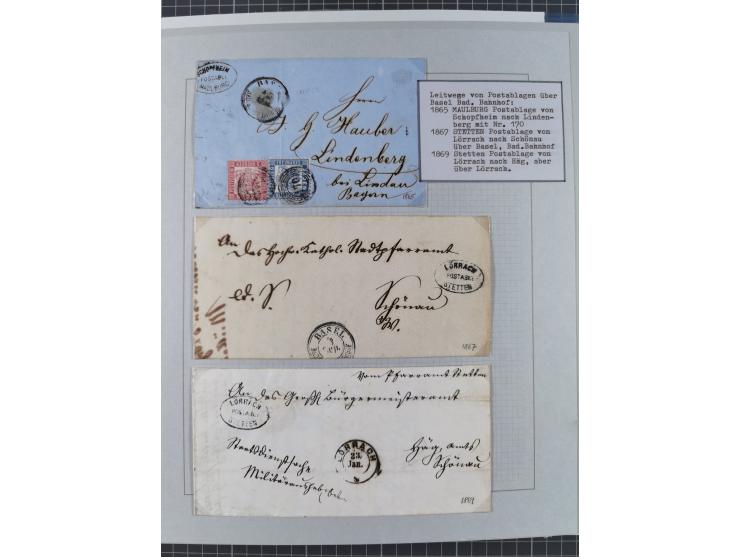 SCHOPFHEIM
POSTABL:
MAULBURG
BAS
Herrn
J. G. Hauber
Lindenberg
bei Lindau
Bayern
1865
Leitwege von Postablagen über
Basel Bad. Bahnhof:
1865 MAULBURG Postablage von
Schopfheim nach Linden-
berg mit Nr. 170
1867 STETTEN Postablage von
Lörrach nach Schönau
über Basel, Bad.Bahnhof
1869 Stetten Postablage von
Lörrach nach Häg, aber
über Lörrach.
An
das Hochw. Kathol. Stadtpfarramt
LÖRRACH
POSTABL:
STETTEN
Schönau
W.
BASEL
1867
Vom Pfarramt Stetten
An das Bürgermeisteramt
LÖRRACH
POSTABL:
STETTEN
Staatsdienstsache
LÖRRACH
23.
Jan.
Häg, Amts
Schönau
1869